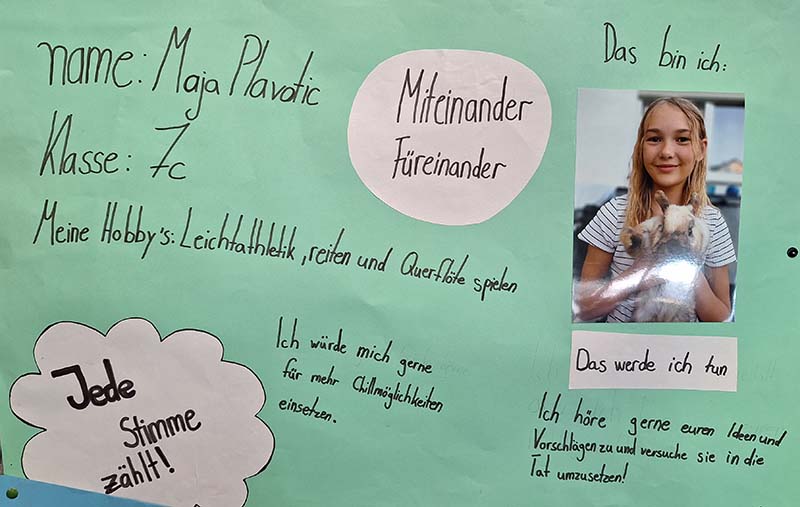 name: Maja Plavotic
Klasse: 7c
Meine Hobby's: Leichtathletik, reiten und Querflöte spielen
Miteinander
Füreinander
Das bin ich:
Jede
Stimme
zählt!
Ich würde mich gerne
für mehr Chillmöglichkeiten
einsetzen.
Das werde ich tun
Ich höre gerne euren Ideen und
Vorschlägen zu und versuche sie in die
Tat umzusetzen!